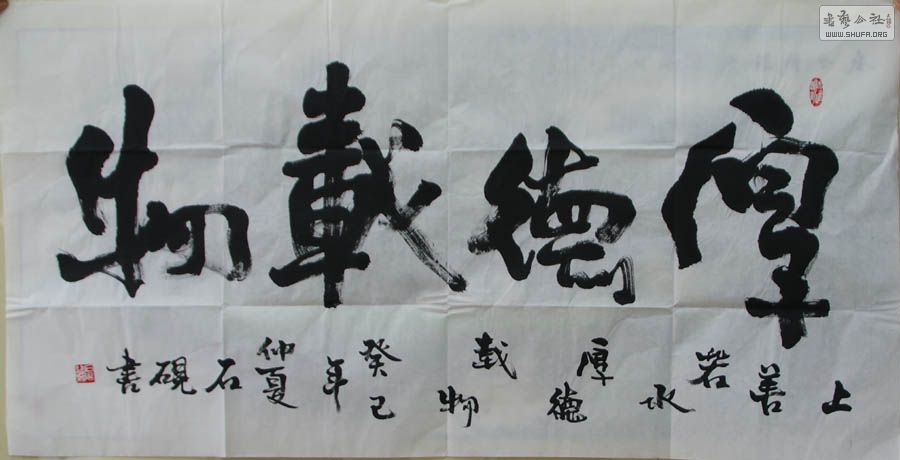 厚德載物
上善若水厚德載物癸巳年仲夏石硯書
書藝公社
WWW.SHUFA.ORG